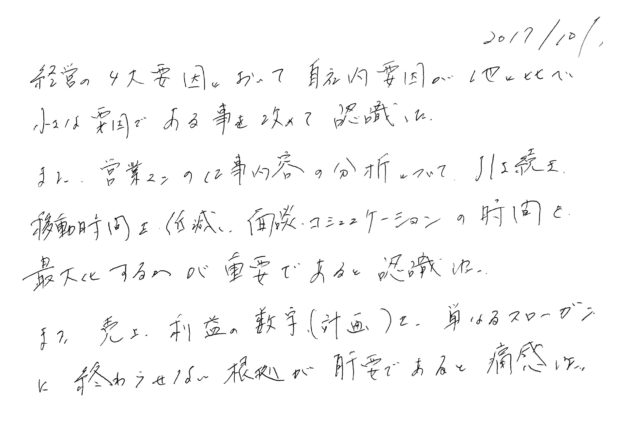 2017/10/1.
経営の4大要因において自社内要因が他と比べ
小さな要因である事を改めて認識した.
また、営業マンの仕事内容の分析について、
移動時間を低減し、面談・コミュニケーションの時間を
最大化するのが重要であると認識した.
また、売上、利益の数字(計画)を、単なるスローガン
に終わらせない根拠が肝要であると痛感した.